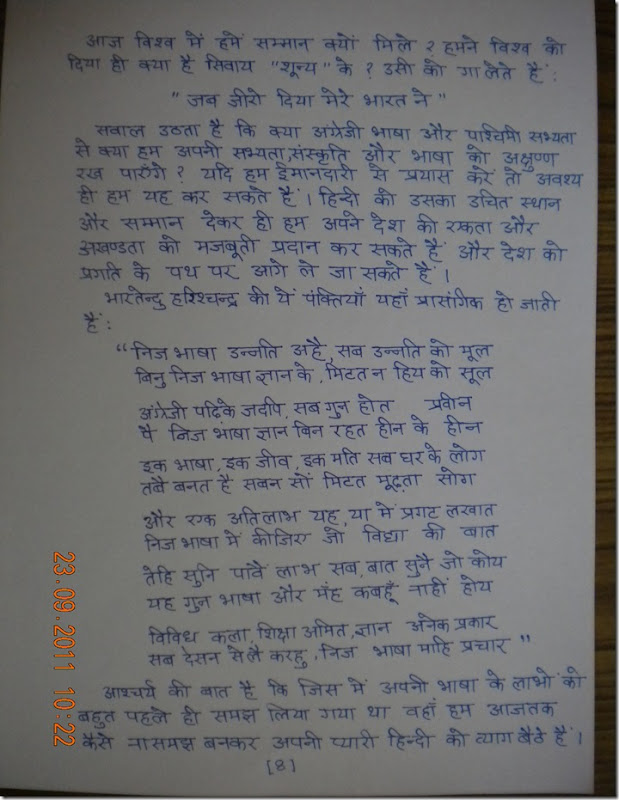 आज विश्व में हमें सम्मान क्यों मिले ? हमने विश्व को
दिया ही क्या है सिवाय "शून्य" के ? उसी को गा लेते हैं :
" जब ज़ीरो दिया मेरे भारत ने "
सवाल उठता है कि क्या अंग्रेजी भाषा और पाश्चिमी सभ्यता
से क्या हम अपनी सभ्यता, संस्कृति और भाषा को अक्षुण्ण
रख पाएँगे ? यदि हम ईमानदारी से प्रयास करें तो अवश्य
ही हम यह कर सकते हैं । हिन्दी को उसका उचित स्थान
और सम्मान देकर ही हम अपने देश की एकता और
अखण्डता को मजबूती प्रदान कर सकते हैं और देश को
प्रगति के पथ पर आगे ले जा सकते हैं ।
भारतेन्दु हरिश्चन्द्र की ये पंक्तियाँ यहाँ प्रासंगिक हो जाती
हैं :
" निज भाषा उन्नति अहै, सब उन्नति को मूल
बिनु निज भाषा ज्ञान के, मिटत न हिय को सूल
अंग्रेजी पढ़िके जदपि, सब गुन होत प्रवीन
पै निज भाषा ज्ञान बिन रहत हीन के हीन
इक भाषा, इक जीव, इक मति सब घर के लोग
तबै बनत है सबन सों मिटत मूढ़ता सोग
और एक अति लाभ यह, या में प्रगट लखात
निज भाषा में कीजिए जो विद्या की बात
तेहि सुनि पावै लाभ सब, बात सुनै जो कोय
यह गुन भाषा और मंह कबहूँ नाहीं होय
विविध कला, शिक्षा अमित, ज्ञान अनेक प्रकार
सब देसन से लै करहु, निज भाषा माहि प्रचार "
आश्चर्य की बात है कि जिस में अपनी भाषा के लाभों को
बहुत पहले ही समझ लिया गया था वहाँ हम आजतक
कैसे नासमझ बनकर अपनी प्यारी हिन्दी को त्याग बैठे हैं ।
[8]
23.09.2011 10:22